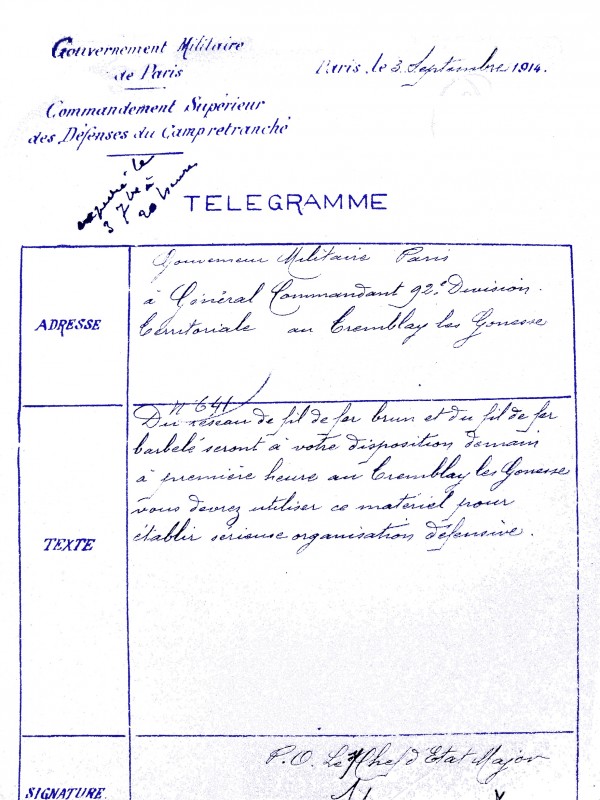 Gouvernement Militaire
de Paris
Paris, le 3 Septembre 1914.
Commandement Supérieur
des Défenses du Camp retranché
expédié le
3 7bre à
20 heures
TELEGRAMME
ADRESSE
Gouverneur Militaire Paris
à Général Commandant 92e Division
Territoriale au Tremblay les Gonesse
TEXTE
N° 641
Du réseau de fil de fer brun et du fil de fer
barbelé seront à votre disposition demain
à première heure au Tremblay les Gonesse
vous devrez utiliser ce matériel pour
établir sérieuse organisation défensive.
SIGNATURE
P.O. Le Chef d'Etat Major